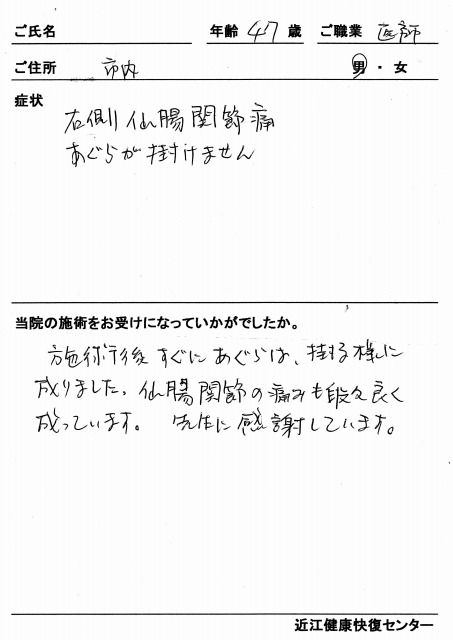 ご氏名 年齢 47 歳 ご職業 医師
ご住所 市内 男・女
症状
右側仙腸関節痛
あぐらが掛けません
当院の施術をお受けになっていかがでしたか。
施術後すぐにあぐらは、掛る様に
成りました。仙腸関節の痛みも段々良く
成っています。 先生に感謝しています。
近江健康快復センター